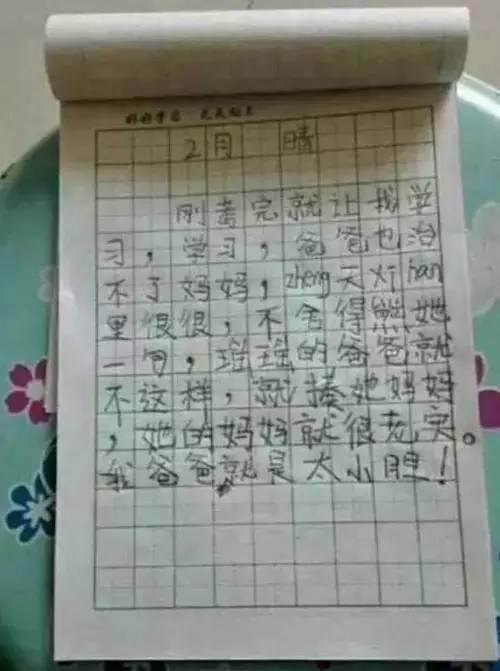 好好学习 天天向上
2月 晴
刚考完就让我学
习，学习，爸爸也治
不了妈妈，zheng天对 han
里很很，不舍得熊她
一句，瑶瑶的爸爸就
不这样，就揍她妈妈
，她的妈妈就很老实。
我爸爸就是太小胆！